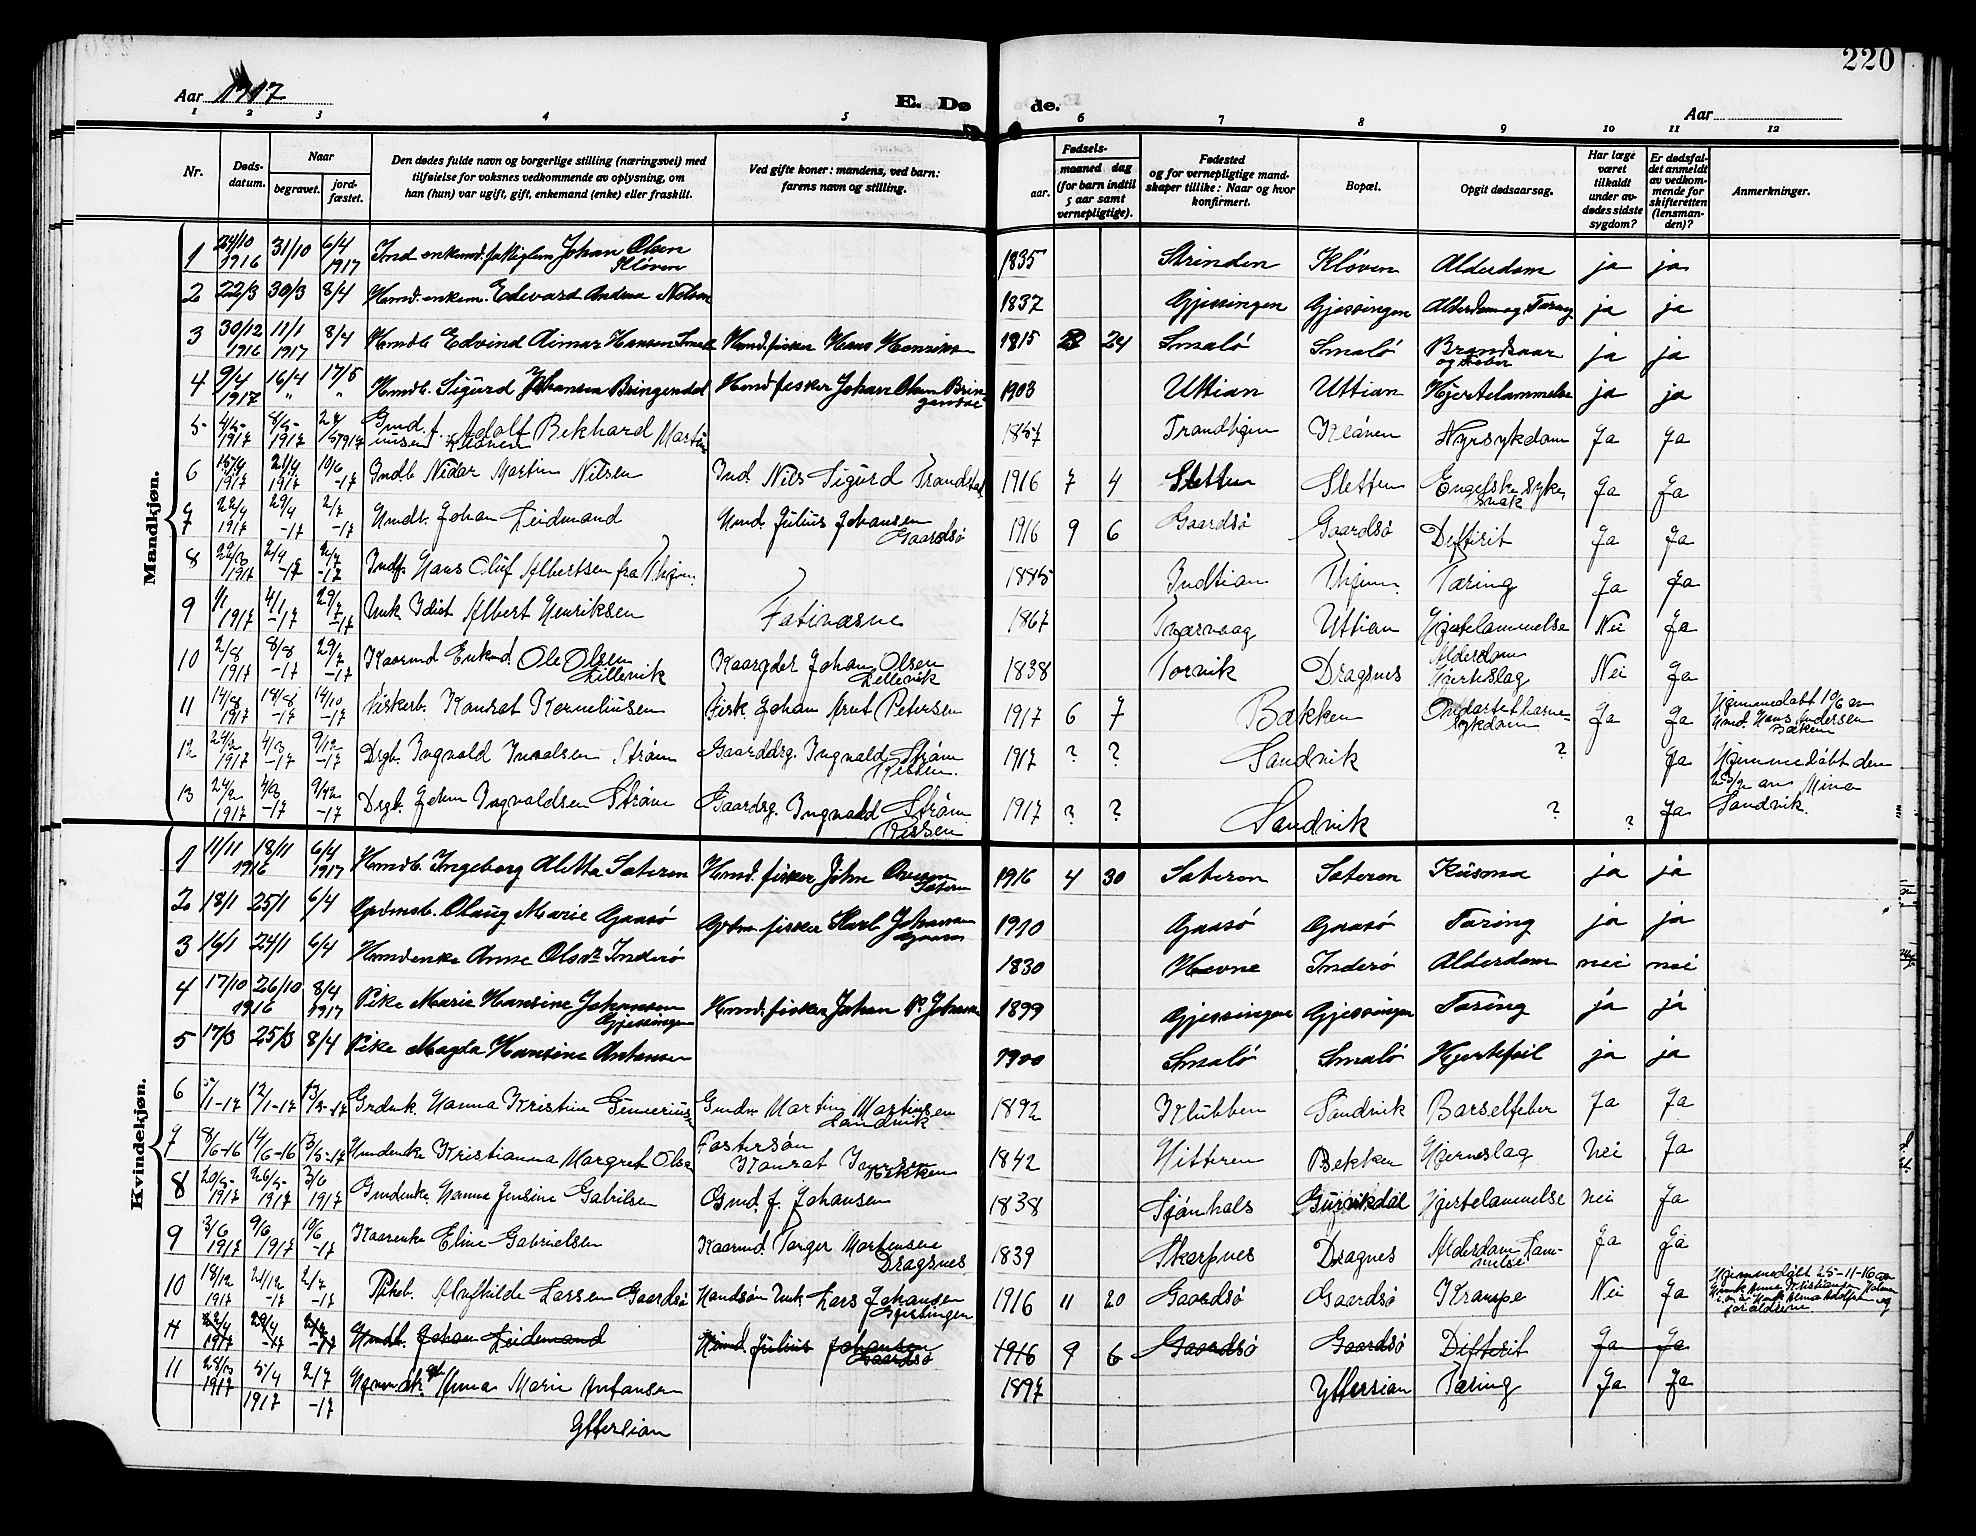 220
Aar 1917
E. Døde.
Aar
1 2 3 4 5 6 7 8 9 10 11 12
Nr.
Døds-datum.
Naar
begravet.
jord-fæstet.
Den dødes fulde navn og borgerlige stilling (næringsvei) med
tilføielse for voksnes vedkommende av oplysning, om
han (hun) var ugift, gift, enkemand (enke) eller fraskilt.
Ved gifte koner: mandens, ved barn:
farens navn og stilling.
Fødsels-
aar.
maaned dag
(for barn indtil
5 aar samt
vernepligtige).
Fødested
og for vernepligtige mand-
skaper tillike: Naar og hvor
konfirmert.
Bopæl.
Opgit dødsaarsag.
Har læge
været
tilkaldt
under av-
dødes sidste
sygdom?
Er dødsfal-
det anmeldt
av vedkom-
mende for
skifteretten
(lensman-
den)?
Anmerkninger.
Mandkjøn.
1 24/10 1916 31/10 6/4 1917 Ind enkemd. fattiglem Johan Olsen Kløven 1835 Strinden Kløven Alderdom ja ja
2 22/3 30/3 8/4 Hmd. enkem. Edevard Andrea Nelson 1837 Gjessingen Gjessingen Alderdom og Tæring ja ja
3 30/12 1916 11/1 1917 8/4 Hmdb. Edvind Aimar Hansen Smalø Hmd. fisker Hans Henriks 1915 24 Smalø Smalø Brandsaar og feber ja ja
4 9/4 1917 16/4 " 17/5 " Hmdb. Sigurd Johansen Bringendal Hmd fisker Johan Olsen Bringendal 1903 Uttian Uttian Hjertelammelse ja ja
5 4/5 1917 8/5 1917 Gmd. f. Adolf Rekhard Martinussen Kløven 1857 Trondhjem Kløven Nyrsykdom Ja Ja
6 15/4 1917 21/4 1917 10/6 -17 Indb Nidar Martin Nilsen Ind. Nils Sigurd 1916 7 4 Sletten Sletten Engelske syke Ja Ja
7 22/4 1917 29/4 -17 2/7 -17 Hmdb. Johan Leidmand Hmd. Julius Johansen Gaardsø 1916 9 6 Gaardsø Gaardsø Difterit Ja Ja
8 1917 2/4 -17 2/7 -17 Indf. Hans Oluf Albertsen fra Thjem. 1885 Indtian Thjem. Tæring Ja Ja
9 1/1 1917 4/1 -17 29/7 -17 Unk Idiot Albert Henriksen Fativæsne 1867 Tværvaag Uttian Hjertelammelse Nei Ja
10 2/8 1917 8/8 -17 29/7 -17 Kaarmd Enkmd. Ole Olsen Lillevik Kaargder Johan Olsen Lillevik 1838 Torvik Dragsnes Alderdom Hjerteslag Nei Ja
11 14/8 1917 18/8 -17 14/10 -17 Fiskerb. Konrat Korneliusen Fisk. Johan Arnt Petersen 1917 6 7 Bakken Ja Ja Hjemmedøbt 10/6 av Gmd. Hans Andersen Bakken
12 24/2 1917 4/3 -17 9/12 -17 Drgb. Ingvald Invalsen Strøm Gaarddrg. Ingvald Strøm Rissen. 1917 ? ? Sandvik ? Ja Hjemmedøbt den 25/2 av Mina Sandvik.
13 24/2 1917 4/3 -17 9/12 -17 Drgb. John Ingvaldsen Strøm Gaardrg. Ingvald Strøm Rissen 1917 ? ? Sandvik ? ? Ja
Kvindekjøn.
1 11/11 18/11 1916 6/4 1917 Hmdb. Ingeborg Aletta Sæteren Hmd. fisker John Sæteren 1916 4 30 Sæteren Sæteren Krisma ja ja
2 18/1 25/1 6/4 Gpdmdb. Olaug Marie Gaasø fisker Karl Johansen Gaasø 1910 Gaasø Gaasø Tæring ja ja
3 16/1 24/1 6/4 Hmdenke Anne Olsdtr Inderø 1830 Hevne Inderø Alderdom nei nei
4 17/10 26/10 1916 8/4 1917 Pike Marie Hansine Johansen Gjessingen Hmd. fisker Johan P. Johansen 1899 Gjessingen Gjessingen Tæring ja ja
5 17/3 25/3 8/4 Pike Magda Hansine Antonsen 1900 Smalø Smalø Hjertefeil ja ja
6 5/1-17 12/1-17 13/3-17 Grdmk. Hanna Kristine Gunneriusen Gmdm Martin Martinsen Sandvik 1892 Klubben Sandvik Barselfeber Ja Ja
7 8/6-16 14/6-16 13/5-17 Hmdenke Kristianna Margret Olsen Fostersøn Konrat Bekken 1842 Hitteren Bekken Hjerneslag Nei Ja
8 20/5 1917 26/5 1917 3/6 1917 Gmdenke Hanna Jensine Gabrilsen Gmd. f. Johansen 1838 Sjønhals Gurvikdal Hjertelammelse nei Ja
9 3/6 1917 9/6 1917 10/6 -17 Kaarenke Eline Gabrielsen Kaarmd. Torger Mortensen Dragsnes 1839 Skarpnes Dragnes Alderdom Lammelse Ja Ja
10 18/12 1917 21/12 -17 2/7 -17 Pikeb. Alfhilde Larsen Gaardsø Handsøn Unk. Lars Johansen Gjessingen 1916 11 20 Gaardsø Gaardsø Krampe Nei Ja Hjemmedøbt 25-11-16 av forældrene
11 22/4 1917 29/4 -17 2/7 -17 Hmdb. Johan Leidemand Hmd. Julius Johansen Gaardsø 1916 9 6 Gaardsø Gaardsø Difterit Ja Ja
11 1917 5/4 1917 2/7 -17 Anna Marie Antonsen Yttersian 1897 Yttersian Tæring Ja Ja